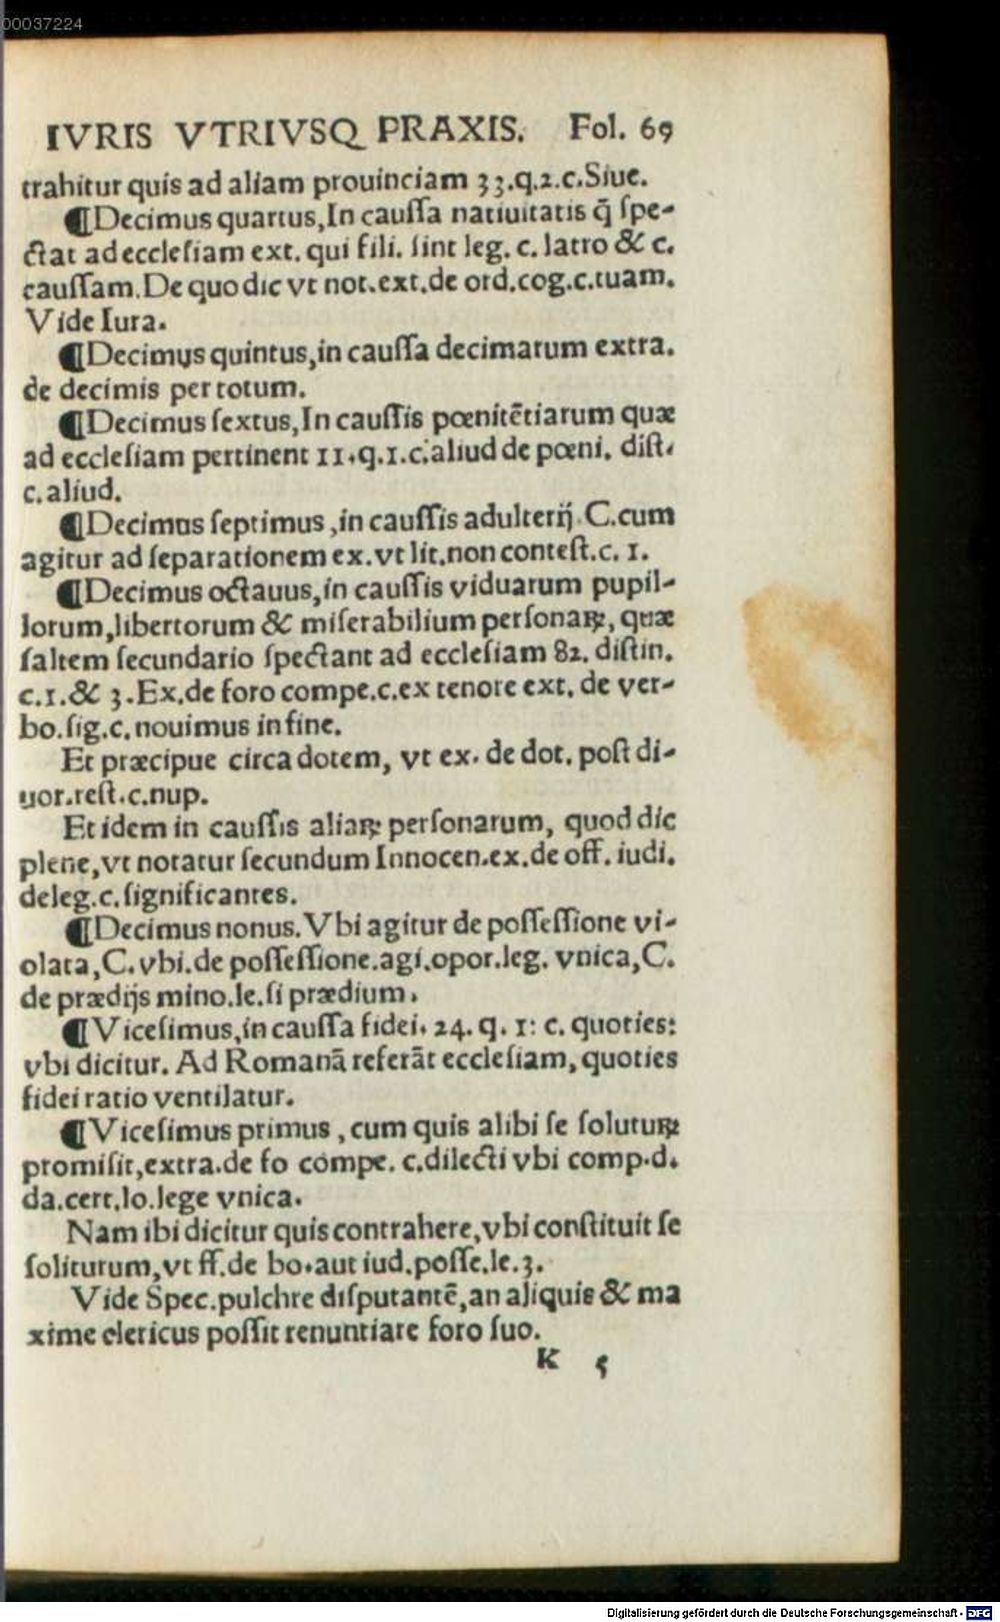 00037224
IVRIS VTRIVSQ PRAXIS. Fol. 69
trahitur quis ad aliam prouinciam 33.q.2.c.Siue.
¶Decimus quartus,In caussa natiuitatis q̃ spe-
ctat ad ecclesiam ext. qui fili. sint leg. c. latro & c.
caussam.De quo dic vt not.ext.de ord.cog.c.tuam.
Vide Iura.
¶Decimus quintus,in caussa decimarum extra.
de decimis per totum.
¶Decimus sextus,In caussis pœnitẽtiarum quæ
ad ecclesiam pertinent 11.q.1.c.aliud de pœni. dist.
c.aliud.
¶Decimus septimus ,in caussis adulterij. C.cum
agitur ad separationem ex.vt lit.non contest.c. 1.
¶Decimus octauus,in caussis viduarum pupil-
lorum,libertorum & miserabilium personaꝝ, quæ
saltem secundario spectant ad ecclesiam 82. distin.
c.1.& 3.Ex.de foro compe.c.ex tenore ext. de ver-
bo.sig.c.nouimus in fine.
Et præcipue circa dotem, vt ex. de dot. post di-
uor.rest.c.nup.
Et idem in caussis aliaꝝ personarum, quod dic
plene,vt notatur secundum Innocen.ex.de off. iudi.
deleg.c.significantes.
¶Decimus nonus.Vbi agitur de possessione vi-
olata,C.vbi.de possessione.agi.opor.leg. vnica,C.
de prædijs mino.le.si prædium.
¶Vicesimus,in caussa fidei. 24. q. 1: c. quoties:
vbi dicitur. Ad Romanã referãt ecclesiam, quoties
fidei ratio ventilatur.
¶Vicesimus primus , cum quis alibi se solutuꝝ
promisit,extra.de fo compe. c.dilecti vbi comp.d.
da.cert.lo.lege vnica.
Nam ibi dicitur quis contrahere,vbi constituit se
soliturum,vt ff.de bo.aut iud.posse.le.3.
Vide Spec.pulchre disputantẽ,an aliquis & ma
xime clericus possit renuntiare foro suo.
K 5
Digitalisierung gefördert durch die Deutsche Forschungsgemeinschaft - DFG